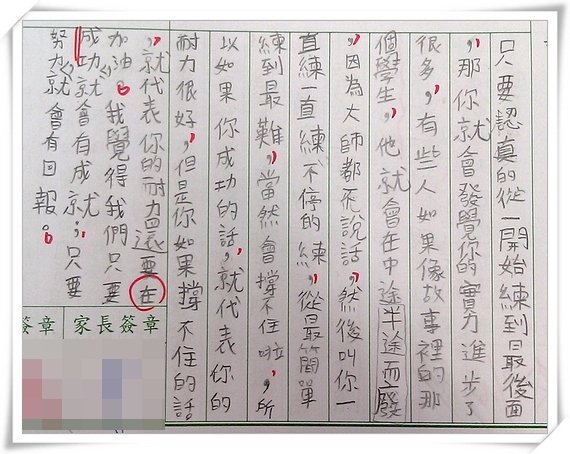 只要認真的從一開始練到最後面
，那你就會發覺你的實力進步了
很多，有些人如果像故事裡的那
個學生，他就會在中途半途而廢
，因為大師都不說話，然後叫你一
直練一直練不停的練，從最簡單
練到最難，當然會撐不住啦，所
以如果你成功的話，就代表你的
耐力很好，但是你如果撐不住的話
，就代表你的耐力還要在
加油。我覺得我們只要
成功就會有成就，只要
努力就會有回報。
家長簽章
簽章